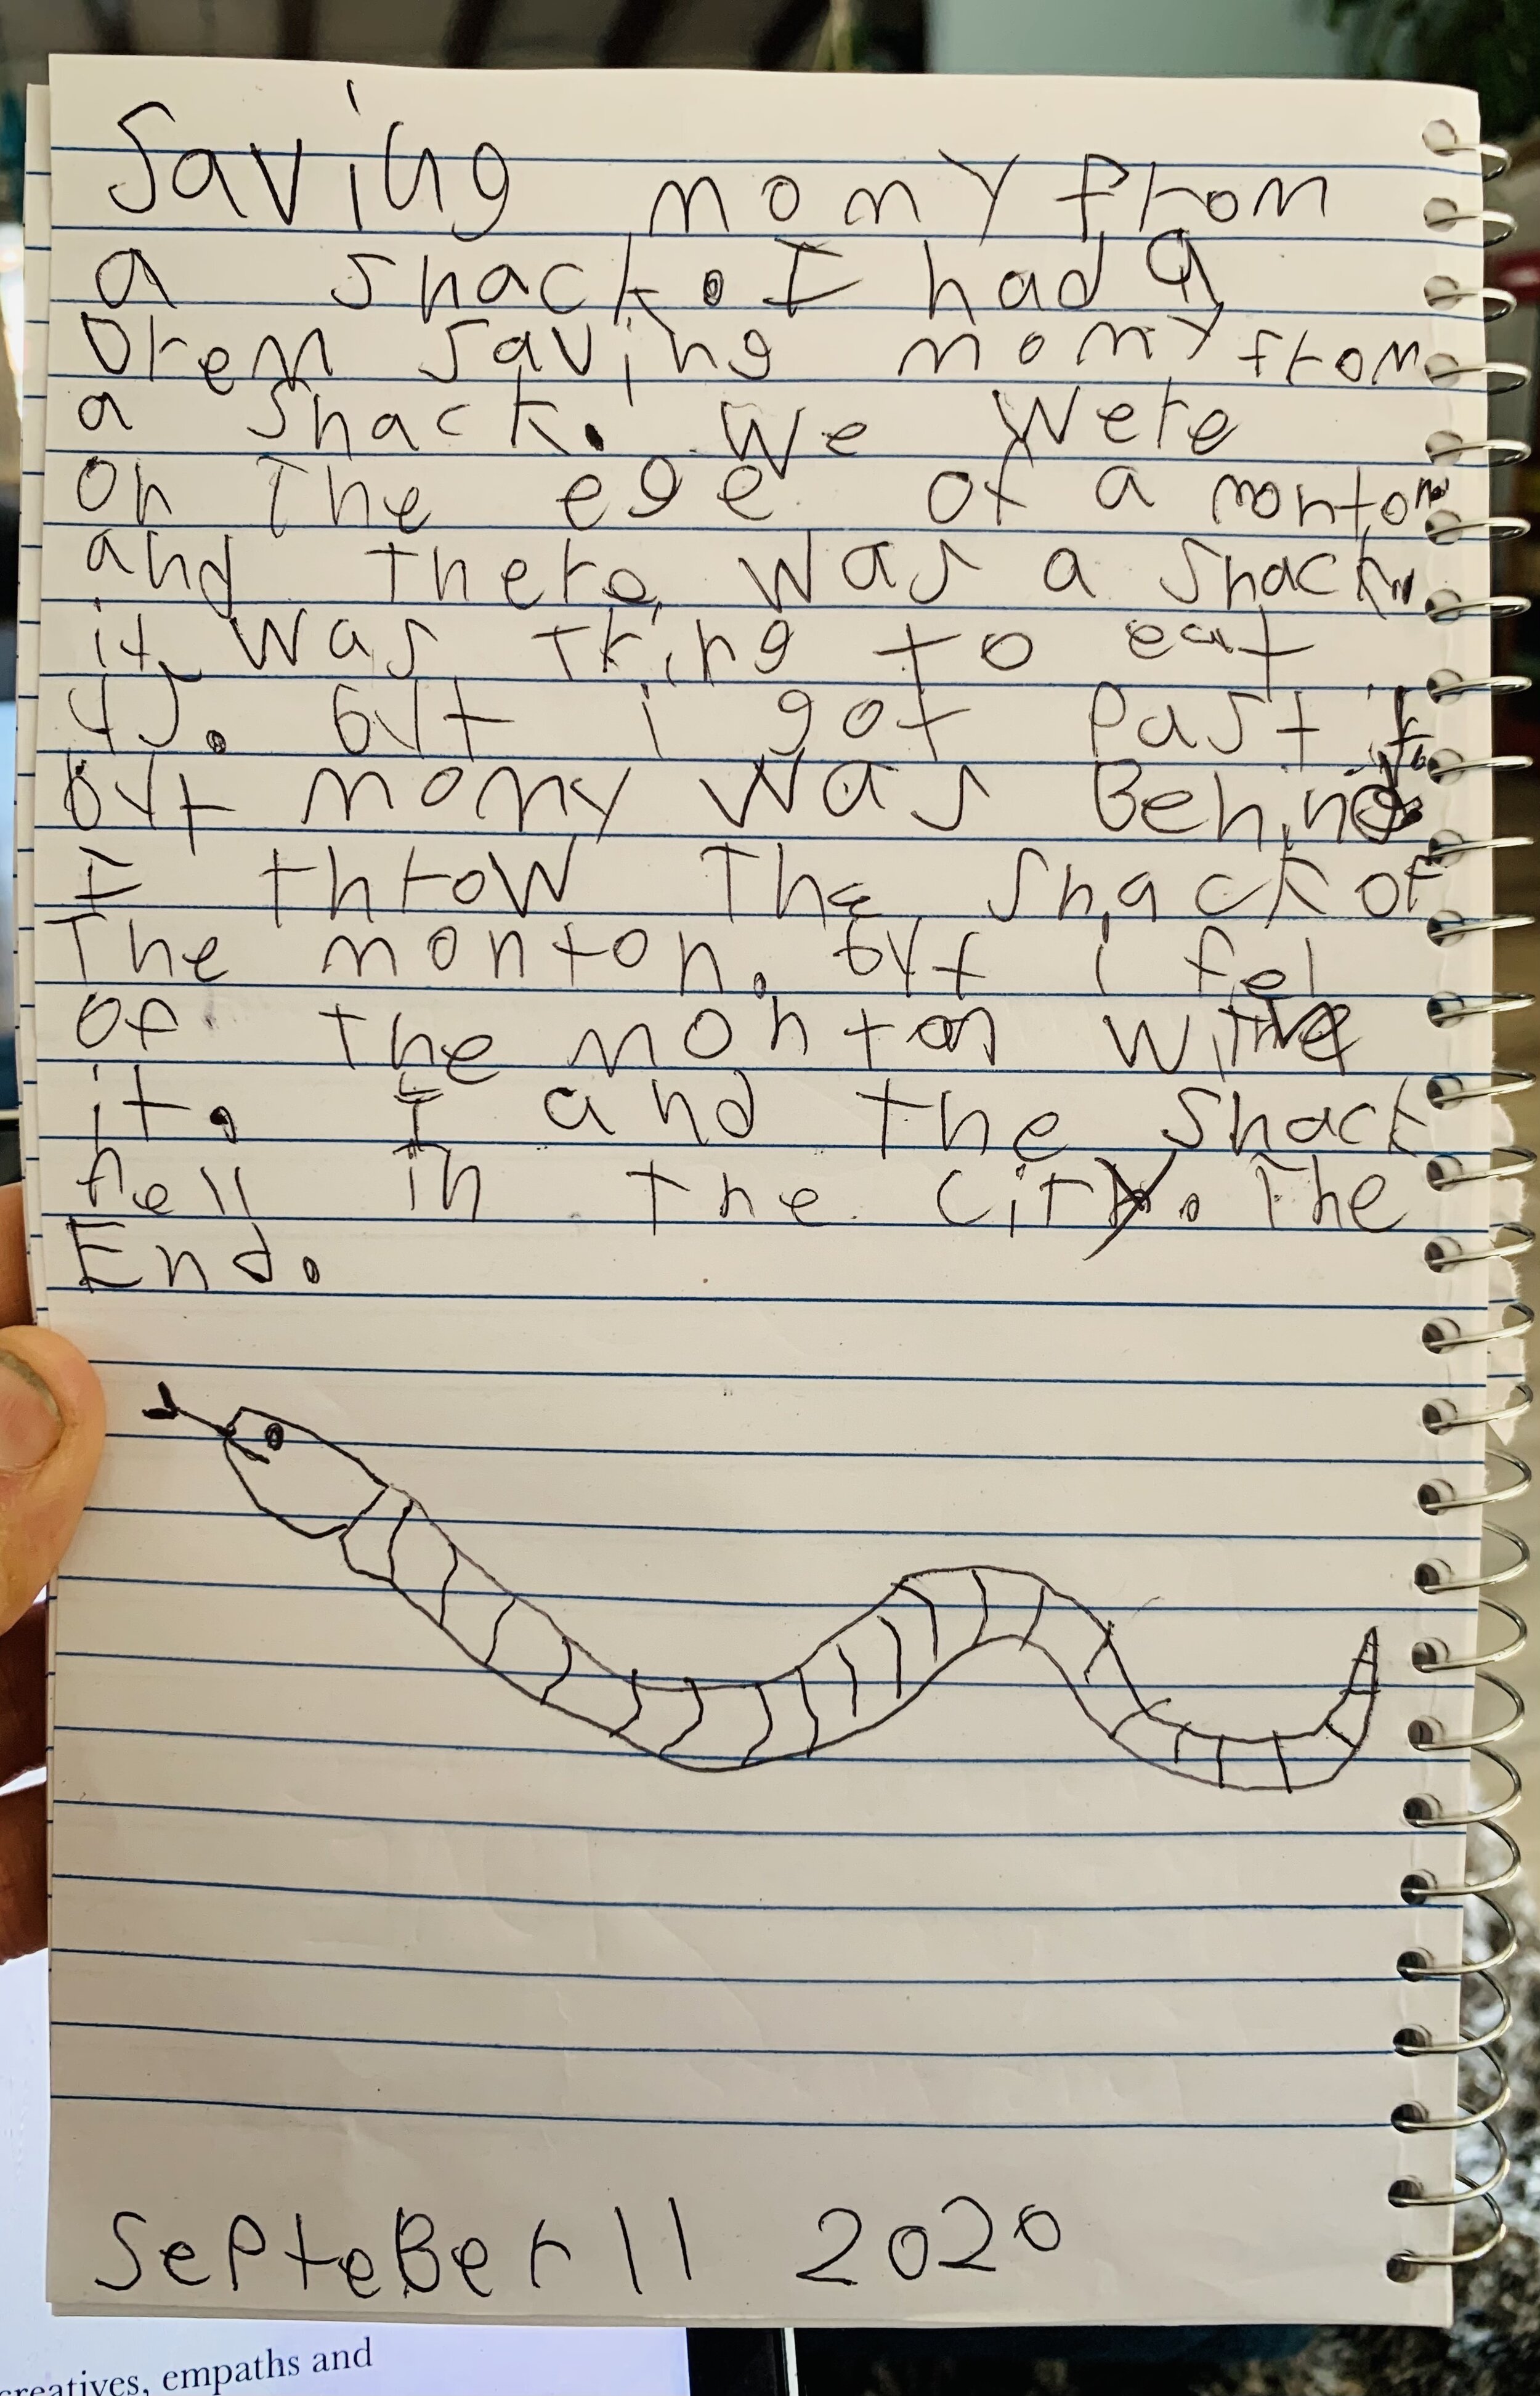 Saving momy from
a snack. I had a
Drem saving momy from
a snack. We Were
on The ege of a monton
and there was a snack
it was tring to eat
us. but i got Past it
but momy was Behind
I throw The snack of
The monton. but i fel
of the monton with
it. I and the snack
fell in the city. The
End.
SePteBer 11 2020
creatives, empaths and